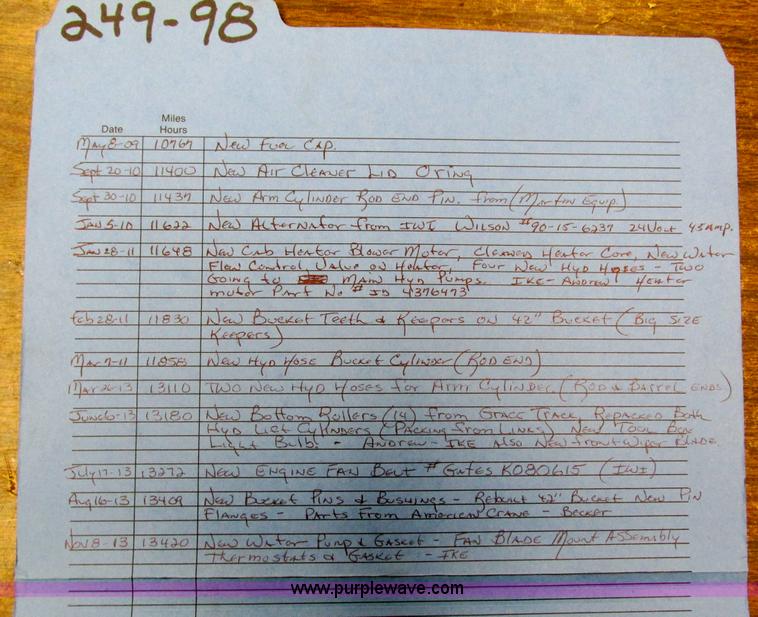 249-98
Miles
Date Hours
May 8-09 10767 New Fuel Cap.
Sept 20-10 11400 New Air Cleaner Lid Oring
Sept 30-10 11437 New Arm Cylinder Rod End Pin. from (Martin Equip.)
Jan 5-10 11622 New Alternator from IWI Wilson #90-15-6237 24Volt 45Amp.
Jan 28-11 11648 New Cab Heator Blower Motor, Cleaned Heator Core, New Water
Flow Control Valve on Heator, Four New Hyd Hoses - Two
Going to Main Hyd Pumps. Ike-Andrew Heator
motor Part No # ID 4376473
Feb 28-11 11830 New Bucket Teeth & Keepers on 42" Bucket (Big Size
Keepers)
Mar 7-11 11858 New Hyd Hose Bucket Cylinder (Rod End)
Mar 26-13 13110 Two New Hyd Hoses for Arm Cylinder (Rod & Barrel Ends)
June 6-13 13180 New Bottom Rollers (14) from Track, Repacked Both
Hyd Lift Cylinders (Packing from Links) New Tool Box
Light Bulb. - Andrew-Ike Also New front Wiper Blade
July 17-13 13272 New Engine Fan Belt # Gates K080615 (IWI)
Aug 16-13 13409 New Bucket Pins & Bushings - Rebuilt 42" Bucket New Pin
Flanges - Parts From American Crane - Becker
Nov 8-13 13420 New Water Pump & Gasket - Fan Blade Mount Assembly
Thermostats & Gasket - Ike
www.purplewave.com